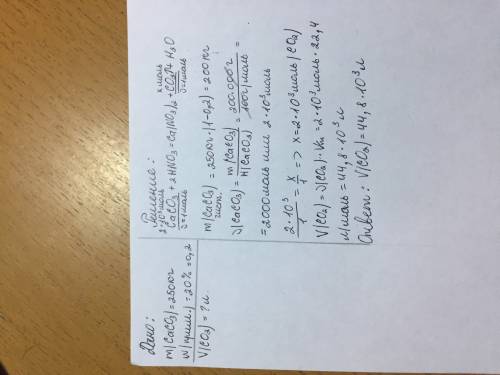 Дано:
m(CaCO3)=250кг
w(прим.)=20%=0,2
V(CO2)=?л.
Решение:
2·10³моль х моль
CaCO3+2HNO3=Ca(NO3)2+CO2↑+H2O
ν=1моль ν=1моль
m(CaCO3)=250кг·(1-0,2)=200кг
чист.
ν(CaCO3)=m(CaCO3)/M(CaCO3)=200.000г/100г/моль=
=2000моль или 2·10³моль
2·10³/1=x/1=>x=2·10³моль(CO2)
V(CO2)=ν(CO2)·Vm=2·10³моль·22,4
л/моль=44,8·10³л
Ответ: V(CO2)=44,8·10³л